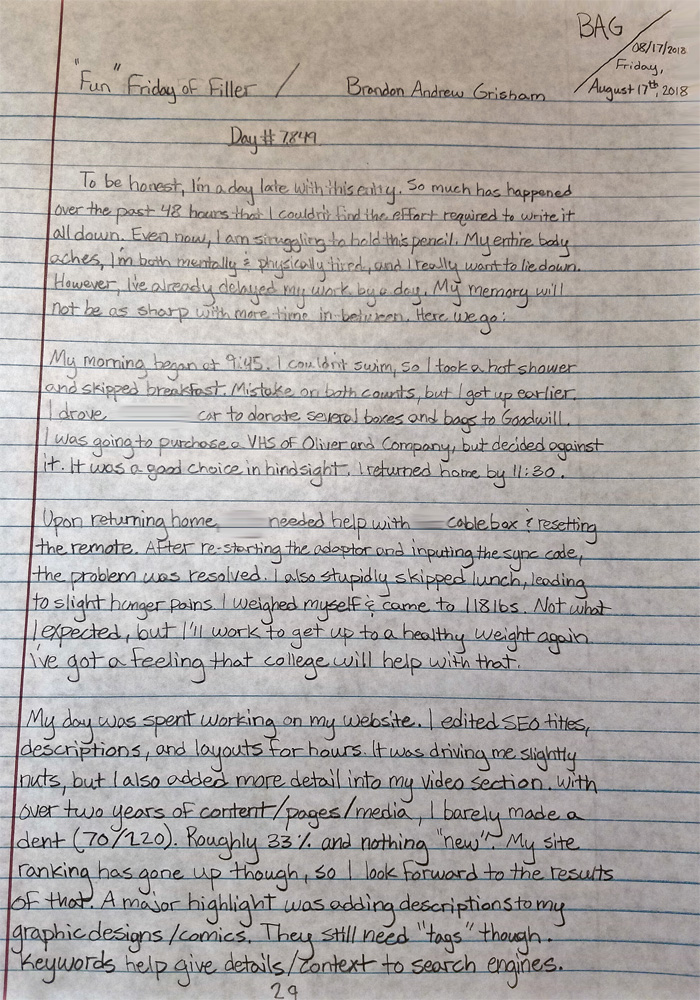 BAG
08/17/2018
Friday,
August 17th, 2018
"Fun" Friday of Filler / Brandon Andrew Grisham
Day # 7849
To be honest, I'm a day late with this entry. So much has happened
over the past 48 hours that I couldn't find the effort required to write it
all down. Even now, I am struggling to hold this pencil. My entire body
aches, I'm both mentally & physically tired, and I really want to lie down.
However, I've already delayed my work by a day. My memory will
not be as sharp with more time in-between. Here we go:
My morning began at 9:45. I couldn't swim, so I took a hot shower
and skipped breakfast. Mistake on both counts, but I got up earlier.
I drove car to donate several boxes and bags to Goodwill.
I was going to purchase a VHS of Oliver and Company, but decided against
it. It was a good choice in hindsight. I returned home by 11:30.
Upon returning home, needed help with cable box & resetting
the remote. After re-starting the adaptor and inputing the sync code,
the problem was resolved. I also stupidly skipped lunch, leading
to slight hunger pains. I weighed myself & came to 118 lbs. Not what
I expected, but I'll work to get up to a healthy weight again.
I've got a feeling that college will help with that.
My day was spent working on my website. I edited SEO titles,
descriptions, and layouts for hours. It was driving me slightly
nuts, but I also added more detail into my video section. With
over two years of content/pages/media, I barely made a
dent (70/220). Roughly 33% and nothing "new". My site
ranking has gone up though, so I look forward to the results
of that. A major highlight was adding descriptions to my
graphic designs/comics. They still need "tags" though.
Keywords help give details/context to search engines.
29